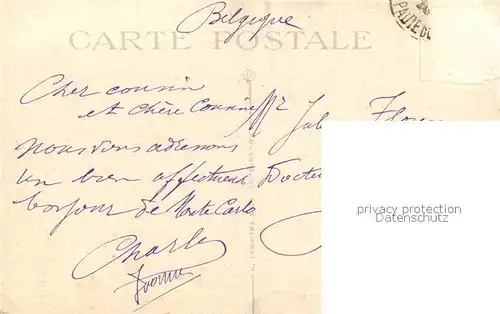 Belgique
CARTE POSTALE
Cher cousin
et chère Cousine
Nous vous adressons
un bien affectueux
bonjour de Monte Carlo
Charles
Yvonne
privacy protection
Datenschutz